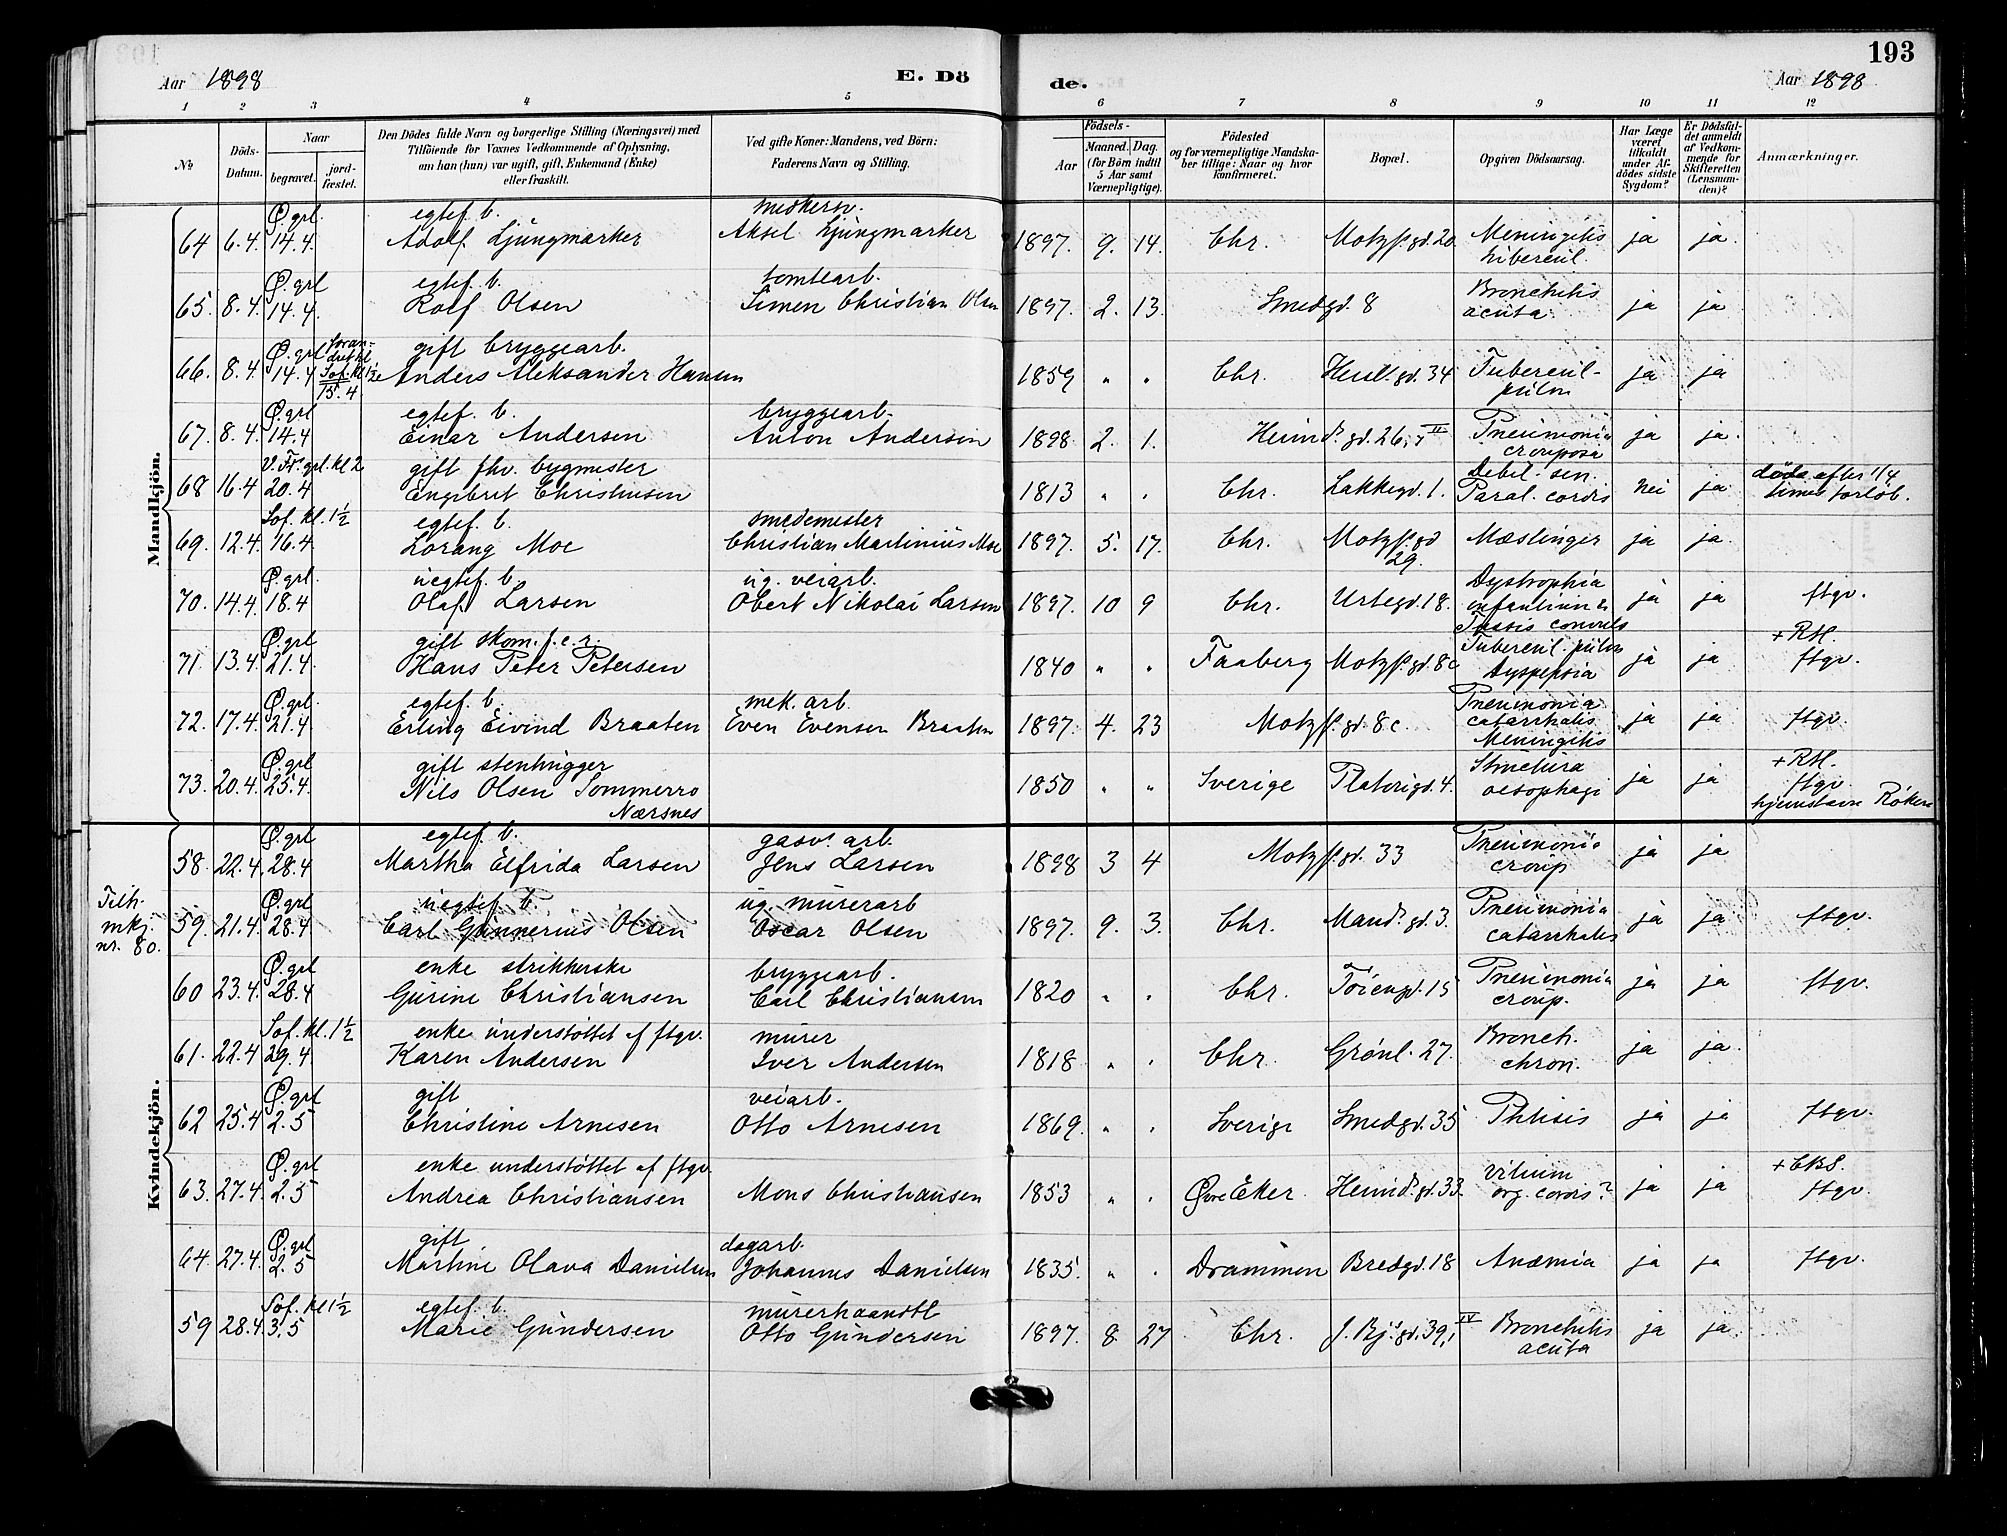 193
Aar 1898 E. Dö de. Aar 1898
1 2 3 4 5 6 7 8 9 10 11 12
No. Döds-Datum. Naar begravet. jord-fæstet. Den Dödes fulde Navn og borgerlige Stilling (Næringsvei) med Tilföiende for Voxnes Vedkommende af Oplysning, om han (hun) var ugift, gift, Enkemand (Enke) eller fraskilt. Ved gifte Koner: Mandens, ved Börn: Faderens Navn og Stilling. Födsels- Aar Maaned. Dag. (for Börn indtil 5 Aar samt Værnepligtige). Födested og for værnepligtige Mandskaber tillige: Naar og hvor konfirmeret. Bopæl. Opgiven Dödsaarsag. Har Læge været tilkaldt under Afdödes sidste Sygdom? Er Dödsfaldet anmeldt af Vedkommende for Skifteretten (Lensmanden)? Anmærkninger.
Mandkjön.
Ø. grl. egtef. b.
64 6.4. 14.4. Adolf Ljungmarker Aksel Ljungmarker 1897. 9. 14. Chr. Motzf. gd. 20 Meningitis tubercul. ja ja
Ø. grl egtef. b. tomtearb.
65. 8.4. 14.4. Rolf Olsen Simen Christian Olsen 1897. 2. 13. Smedgd. 8 Bronchitis acuta. ja ja
Ø. grl gift bryggearb.
66. 8.4. 14.4 Sof. kl 1½ 15.4 Anders Aleksander Hansen 1859 " " Chr. Hersl. gd. 34 Tubercul. pulm ja ja
Ø. grl egtef. b. bryggearb.
67. 8.4. 14.4 Einar Andersen Anton Andersen 1898 2. 1. Heimd. gd. 26, II Pneumonia crouposa ja ja.
V. Fr. grl. kl 2 gift fhv. bygmester
68 16.4 20.4 Engebret Christensen 1813 " " Chr. Lakkegd. 1. Debil. sen. Paral. cordis nei ja döde efter ¼ times forlöb.
Sof. kl. 1½ egtef. b. smedemester
69. 12.4. 16.4. Lorang Moe Christian Martinius Moe 1897. 5. 17. Chr. Motzf. gd 29. Mæslinger ja ja.
Ø. grl. uegtef. b. ug. veiarb.
70. 14.4. 18.4 Olaf Larsen Obert Nikolai Larsen 1897. 10 9 Chr. Urtegd. 18. Dystrophia infantum & Tussis convuls ja ja ftgv.
Ø. grl gift skom. f.e.r.
71. 13.4. 21.4. Hans Peter Petersen 1840 " " Faaberg Motzf. gd. 8c Tubercul. pulm Dyspepsia ja ja + RH. ftgv.
Ø. grl. egtef. b. mek. arb.
72. 17.4. 21.4. Erling Eivind Braaten Even Evensen Braaten 1897. 4. 23 Motzf. gd. 8c. Pneumonia catarrhalis Meningitis ja ja ftgv.
Ø. grl gift stenhugger
73. 20.4. 25.4. Nils Olsen Sommerro Nærsnes 1850 " " Sverige Platousgd. 4. Strictura oesophagi ja ja + RH. ftgv hjemstavn Röken
Kvindekjön.
Ø. grl egtef. b. gasv. arb.
58. 22.4. 28.4 Martha Elfrida Larsen Jens Larsen 1898 3 4 Motzf. gd. 33 Pneumonia croup ja ja
Tilh. mkj. nr. 80.
Ø. grl uegtef. b. ug. murerarb
59. 21.4. 28.4. Carl Gunnerius Olsen Oscar Olsen 1897. 9. 3. Chr. Mand. gd. 3. Pneumonia catarrhalis ja ja ftgv.
Ø. grl enke strikkerske bryggearb.
60 23.4. 28.4 Gurine Christiansen Carl Christiansen 1820 " " Chr. Töiengd. 15 Pneumonia croup. ja ja ftgv.
Sof. kl. 1½ enke understöttet af ftgv. murer
61. 22.4 29.4. Karen Andersen Iver Andersen 1818 " " Chr. Grönl. 27. Bronch. chron. ja ja.
Ø. grl gift veiarb.
62 25.4 2.5 Christine Arnesen Otto Arnesen 1869. " " Sverige Smedgd. 35 Phtisis ja ja ftgv.
Ø. grl enke understöttet af ftgv.
63. 27.4. 2.5 Andrea Christiansen Mons Christiansen 1853 " " Øvre Eker Heimd. gd. 33. Vitium org. cordis? ja ja + CBS. ftgv.
Ø. grl gift dagarb.
64. 27.4. 2.5 Martine Olava Danielsen Johannes Danielsen 1835. " " Drammen Bredgd. 18 Anæmia ja ja ftgv.
Sof. kl 1½ egtef. b. murerhaandtl
59 28.4. 3.5 Marie Gundersen Otto Gundersen 1897. 8 27 Chr. J. Bj. gd. 39, IV Bronchitis acuta ja ja.